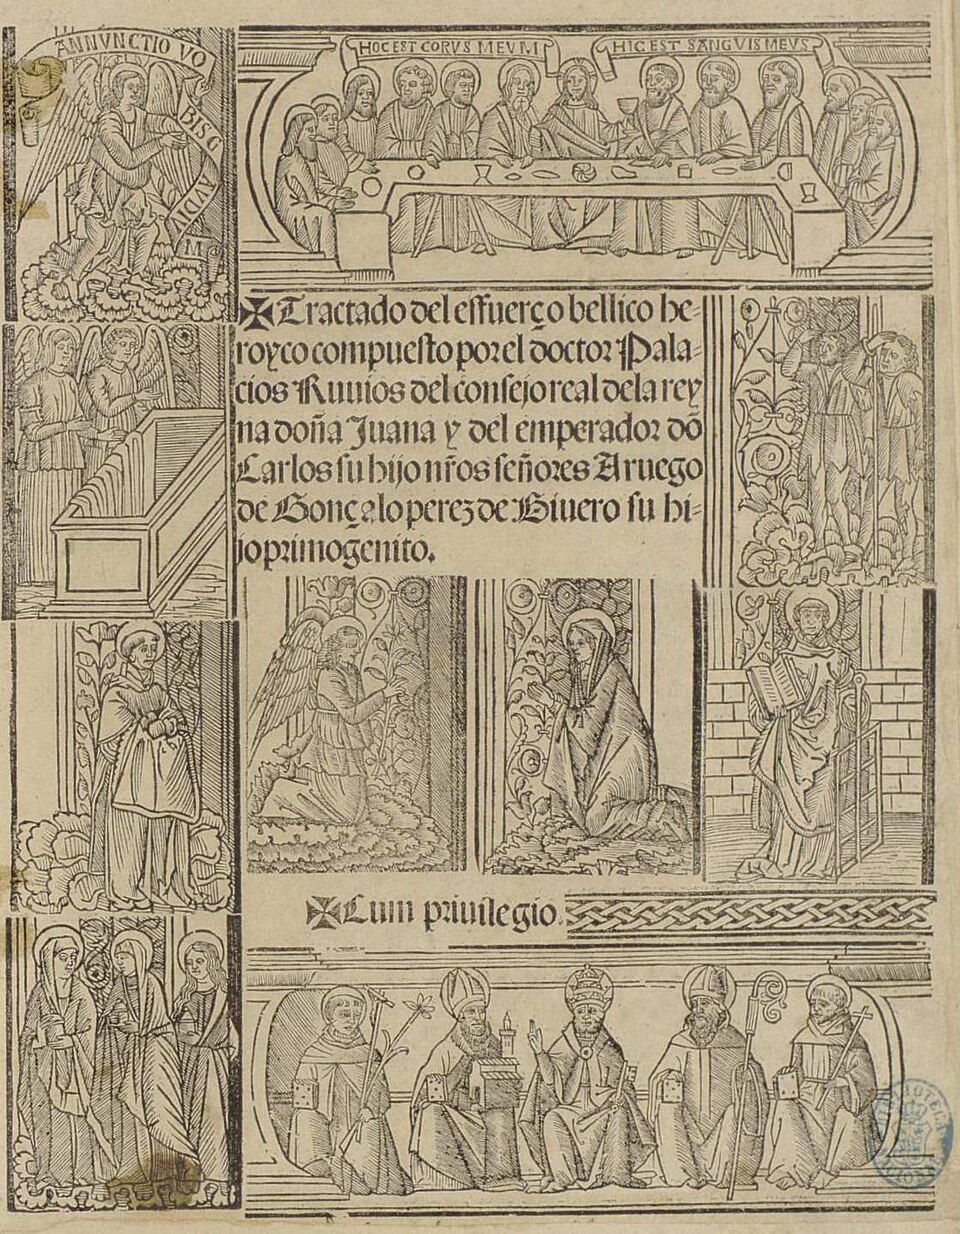 ANNVNCTIO VO
BIS G
AVDIV
M
HOC EST CORVS MEVM
HIC EST SANGVIS MEVS
✠ Tractado del effuerço bellico he-
royco compuesto por el doctor Pala-
cios Ruuios del consejo real de la rey
na doña Juana y del emperador dõ
Carlos su hijo nr̃os señores A ruego
de Gonçalo perez de Biuero su hi-
jo primogenito.
✠ Cum priuilegio.